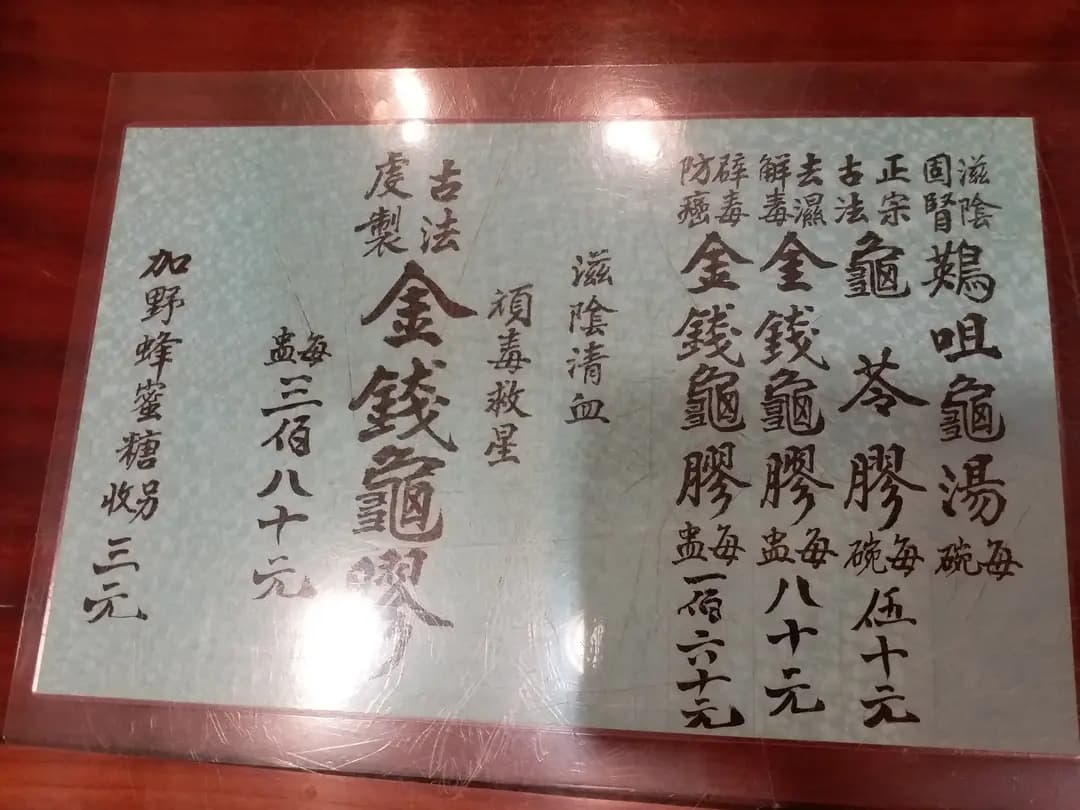 滋陰固腎咀龜湯每碗
正宗古法龜苓膠每碗伍十元
去濕解毒金錢龜膠每盅八十元
辟毒防癌金錢龜膠每盅一佰六十元
滋陰清血
頑毒救星
古法虔製金錢龜膠
每盅三佰八十元
加野蜂蜜糖另收三元